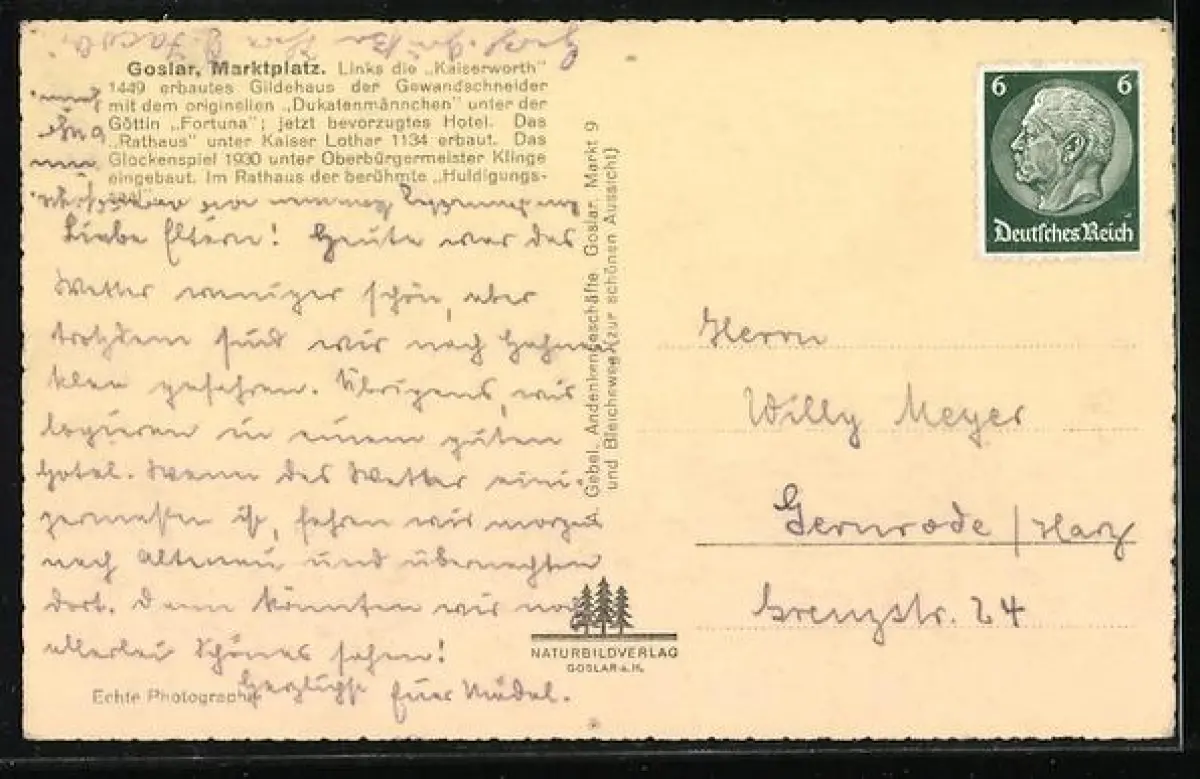 Goslar, Marktplatz. Links die „Kaiserworth"
1449 erbautes Gildehaus der Gewandschneider
mit dem originellen „Dukatenmännchen" unter der
Göttin „Fortuna"; jetzt bevorzugtes Hotel. Das
„Rathaus" unter Kaiser Lothar 1134 erbaut. Das
Glockenspiel 1930 unter Oberbürgermeister Klinge
eingebaut. Im Rathaus der berühmte „Huldigungs-
saal"
Liebe Eltern! Heute war das
Wetter weniger schön, aber
trotzdem sind wir nach Hahnen
klee gefahren. Übrigens, wir
logieren in einem guten
Hotel. Wenn das Wetter eini-
germaßen ist, fahren wir morgen
nach Altenau und übernachten
dort. Dann könnten wir noch
allerlei Schönes sehen!
Herzlichst Euer Mädel.
Echte Photographie
A. Gebel, Andenkengeschäfte, Goslar, Markt 9
und Bleicheweg (zur schönen Aussicht)
NATURBILDVERLAG
GOSLAR a. H.
6 6
Deutsches Reich
Herrn
Willy Meyer
Gernrode / Harz
Grenzstr. 24